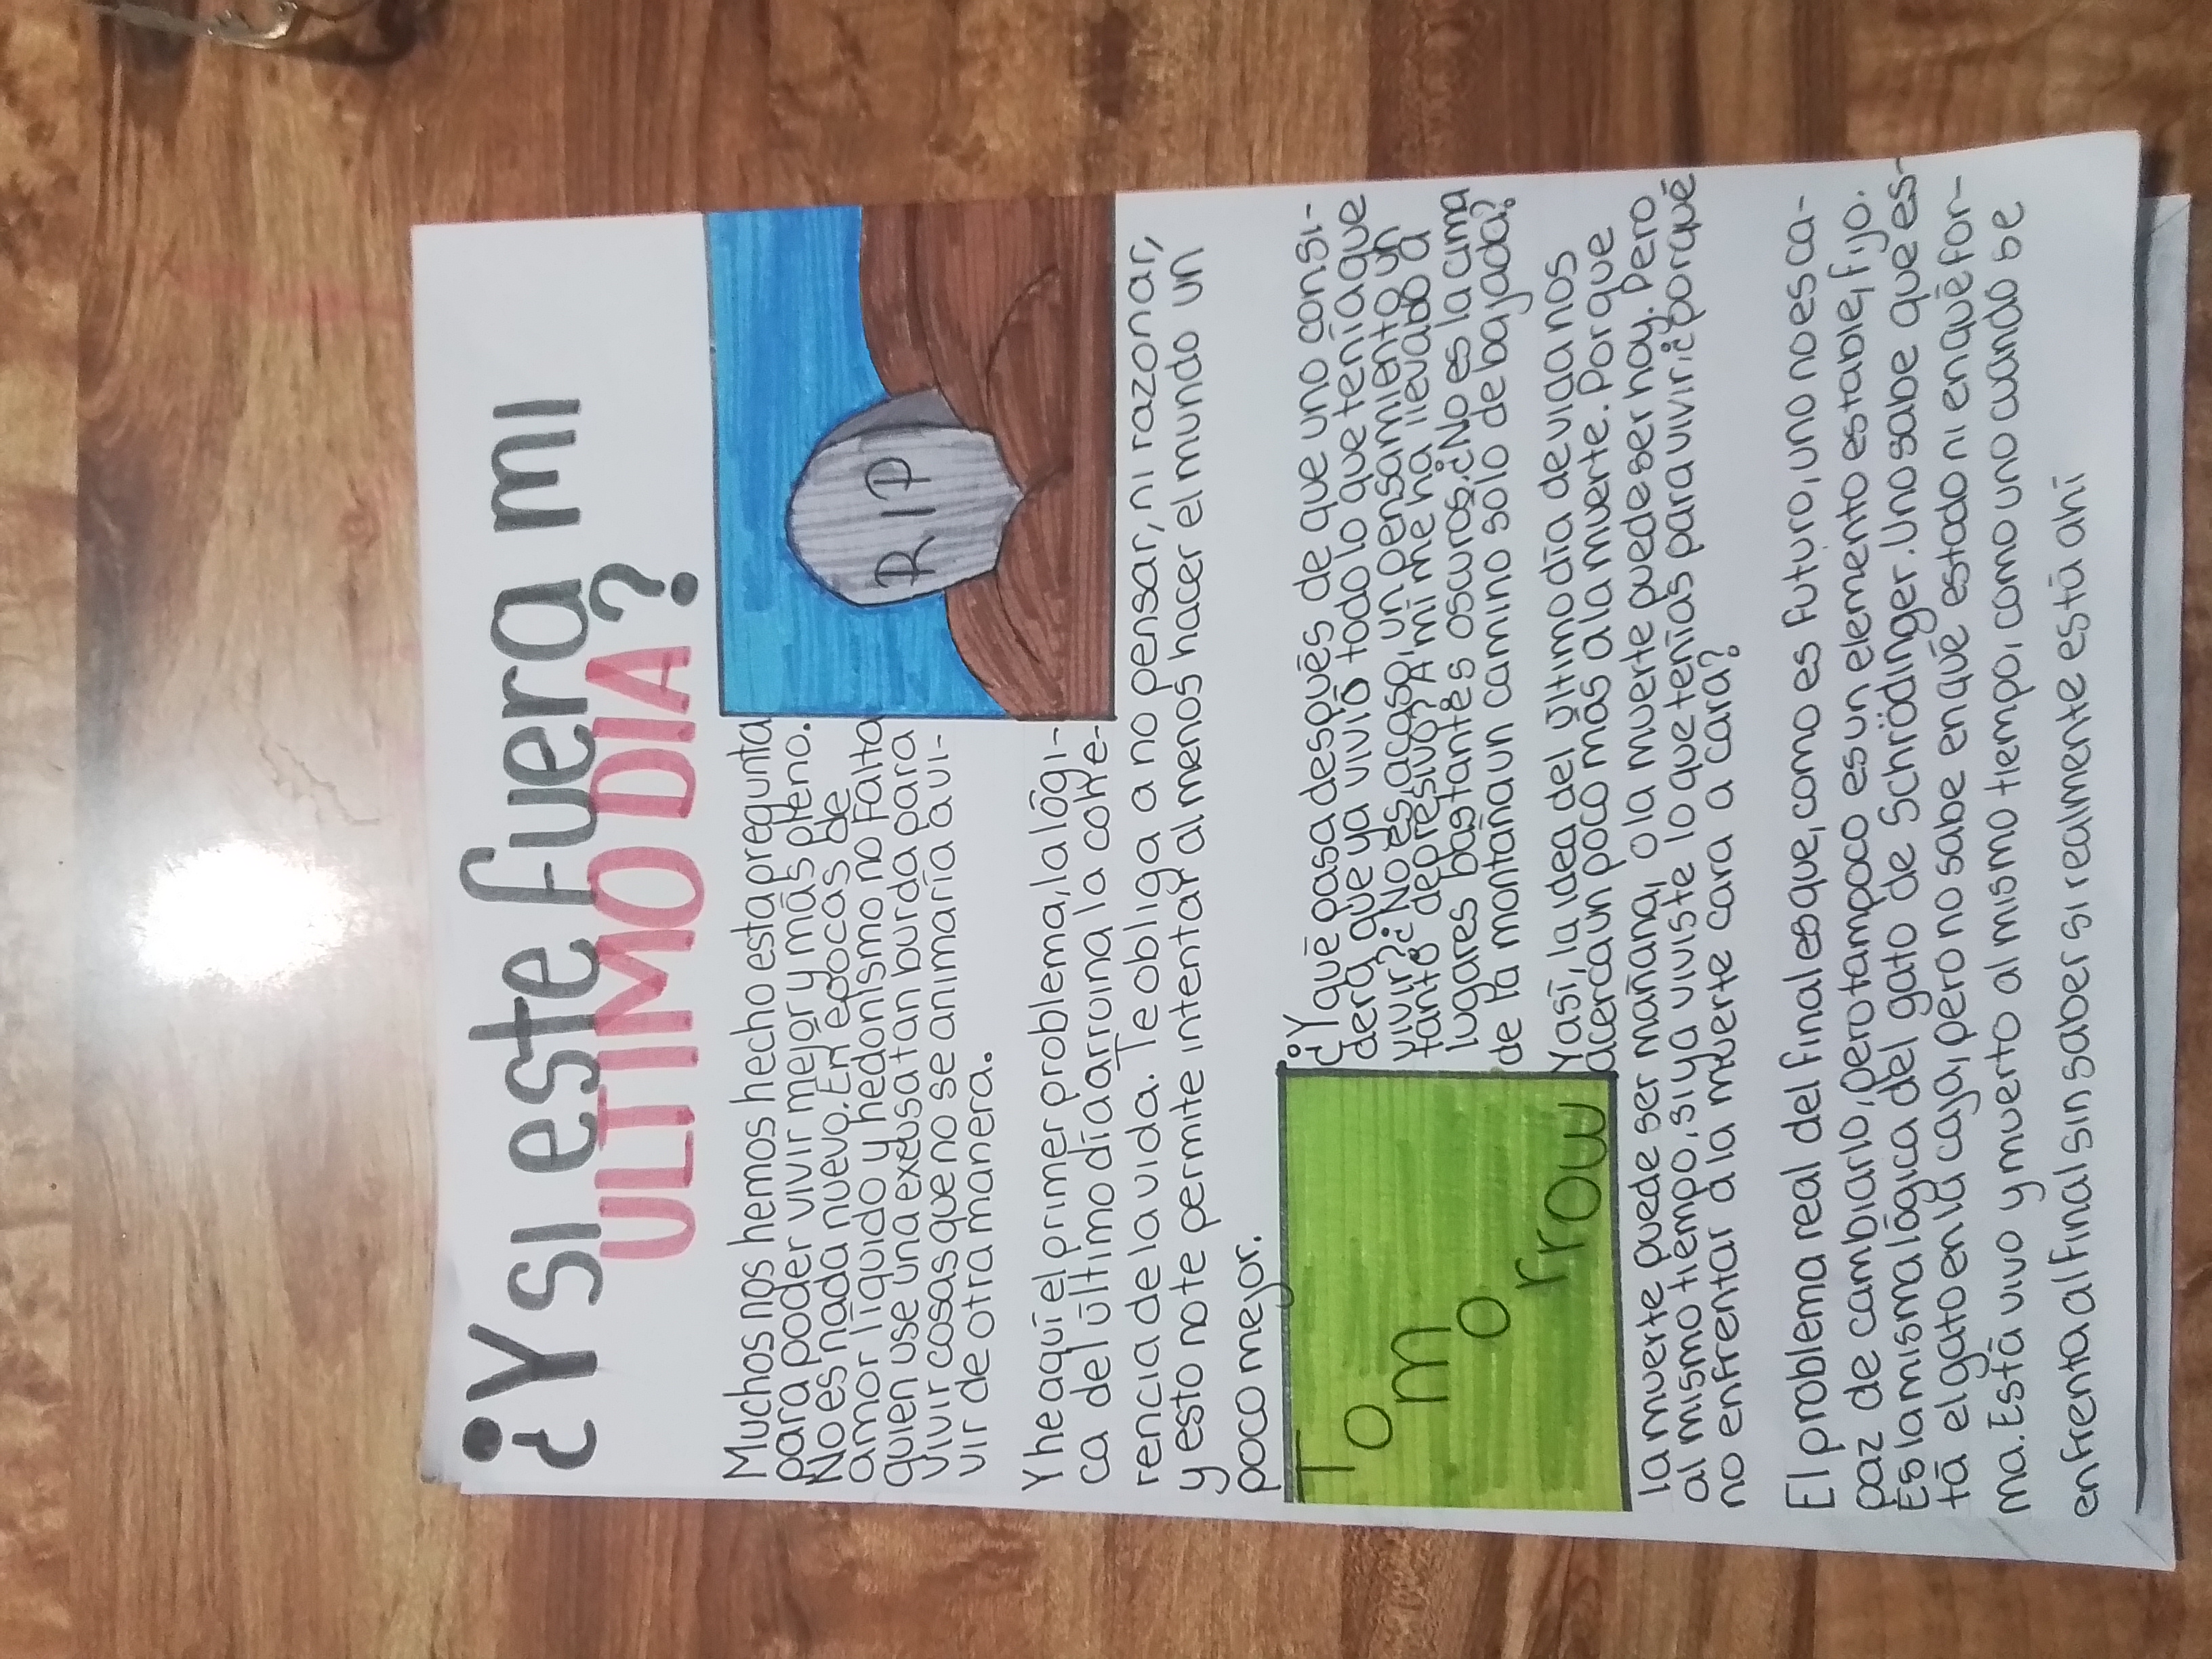 ¿Y si este fuera mi
ULTIMO DIA?
Muchos nos hemos hecho esta pregunta
para poder vivir mejor y más pleno.
No es nada nuevo. En epocas de
amor líquido y hedonismo no falta
quien use una excusa tan burda para
vivir cosas que no se animaría a vi-
vir de otra manera.
RIP
Y he aquí el primer problema, la lógi-
ca del último día arruina la cohe-
rencia de la vida. Te obliga a no pensar, ni razonar,
y esto no te permite intentar al menos hacer el mundo un
poco mejor.
Tomorrow
¿Y qué pasa después de que uno consi-
dera que ya vivió todo lo que tenía que
vivir? ¿No es, acaso, un pensamiento un
tanto depresivo? A mí me ha llevado a
lugares bastantes oscuros. ¿No es la cima
de la montaña un camino solo de bajada?
Y así, la idea del último día de vida nos
acerca un poco más a la muerte. Porque
la muerte puede ser mañana, o la muerte puede ser hoy. Pero
al mismo tiempo, si ya viviste lo que tenías para vivir ¿porqué
no enfrentar a la muerte cara a cara?
El problema real del final es que, como es futuro, uno no es ca-
paz de cambiarlo, pero tampoco es un elemento estable, fijo.
Es la misma lógica del gato de Schrödinger. Uno sabe que es-
tá el gato en la caja, pero no sabe en qué estado ni en qué for-
ma. Está vivo y muerto al mismo tiempo, como uno cuando se
enfrenta al final sin saber si realmente está ahí